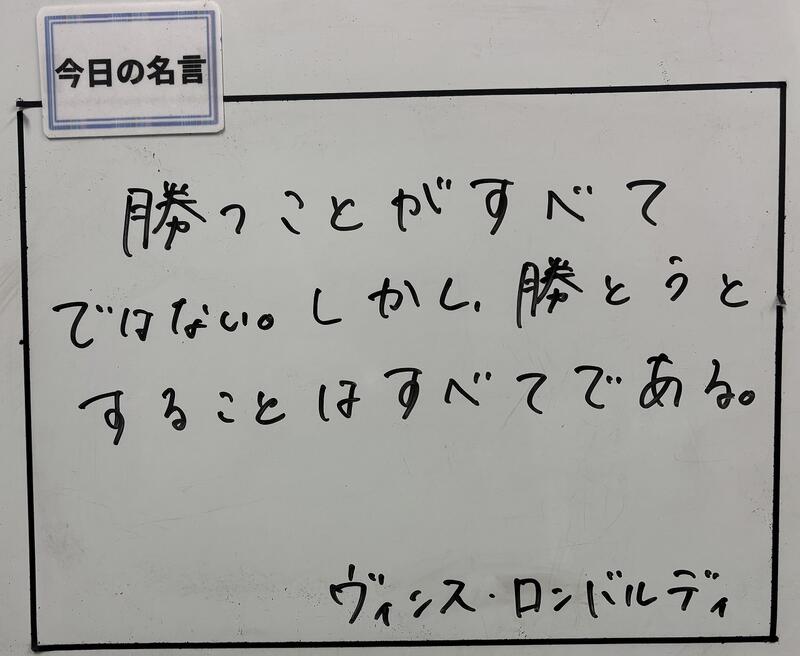 今日の名言
勝つことがすべて
ではない。しかし、勝とうと
することはすべてである。
ヴィンス・ロンバルディ